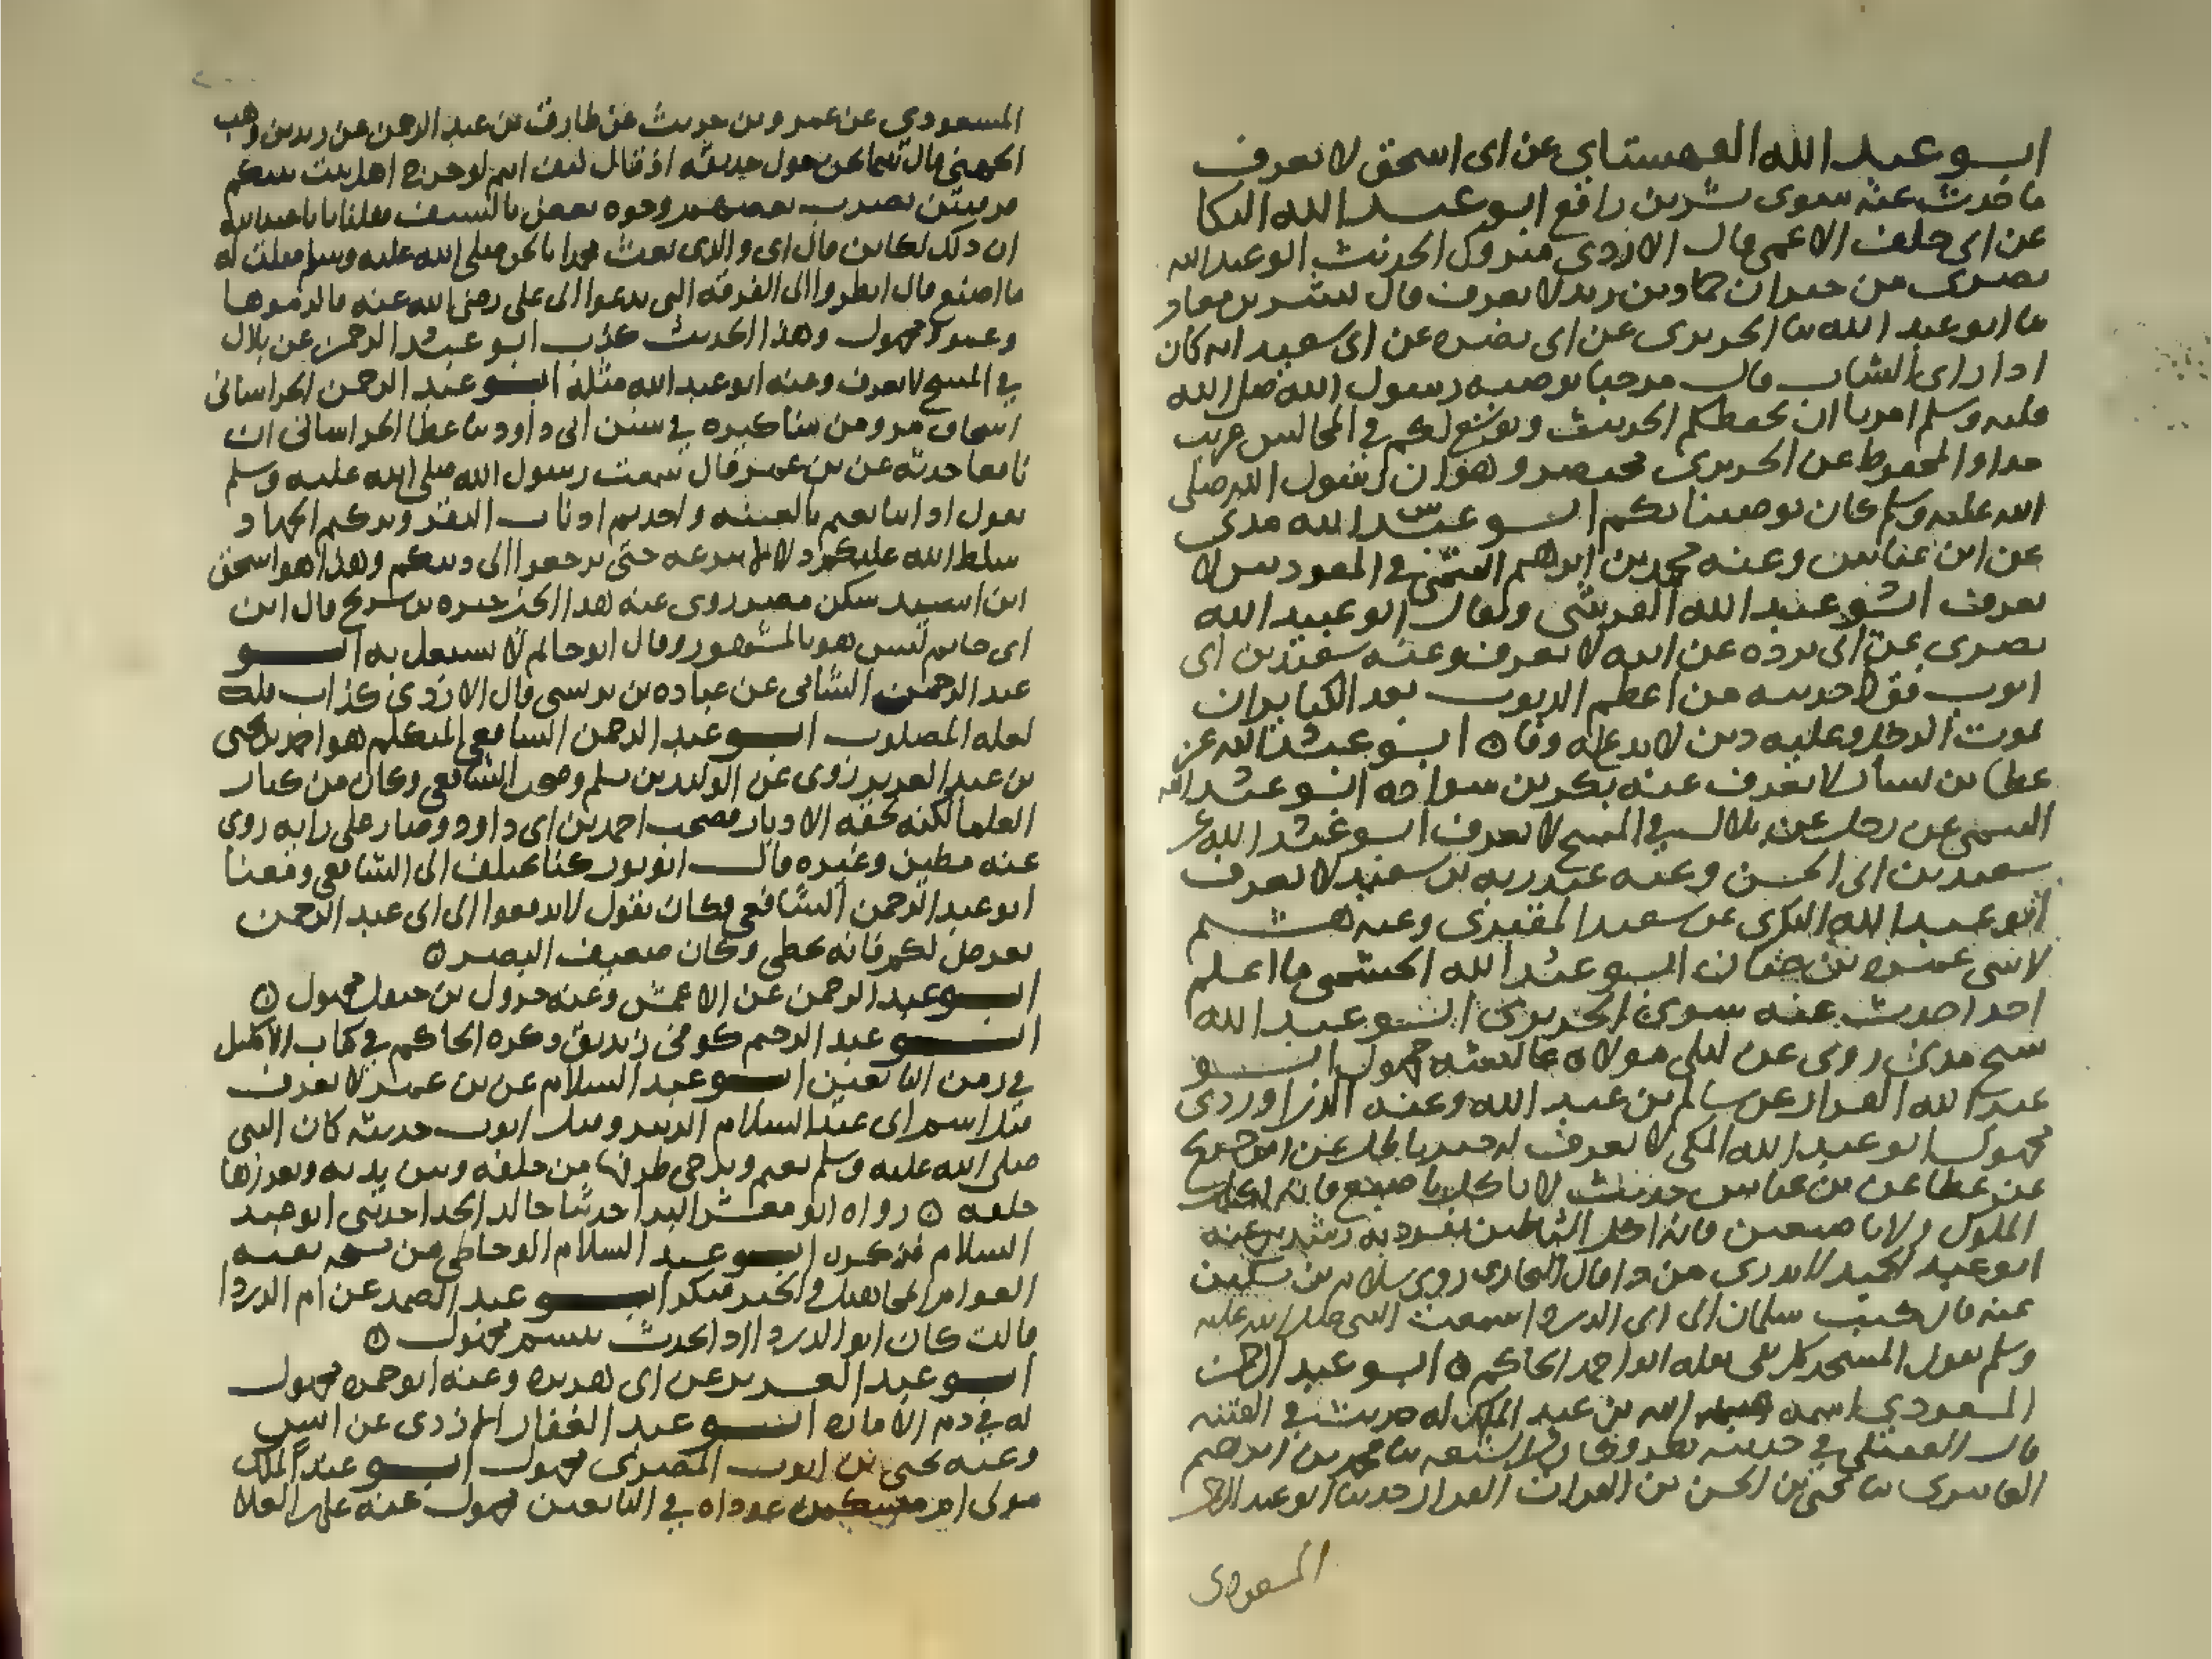 ابو عبد الله القهستاني عن ابي اسحق لا يعرف
ما حدث عنه سوى بشر بن رافع ابو عبد الله البكا
عن ابي خلف الاعمى قال الازدي متروك الحديث ابو عبد الله
بصرى من جيران حماد بن زيد لا يعرف قال بشر بن معاذ
ثنا ابو عبد الله ثنا الجريرى عن ابى نضره عن ابى سعيد انه كان
اذا راى الشاب قال مرحبا بوصيه رسول الله صلى الله
عليه وسلم امرنا ان نحفظكم الحديث ونوسع لكم في المجالس غريب
جدا والمحفوظ عن الجريرى مختصر وهو ان رسول الله صلى
الله عليه وسلم كان يوصينا بكم ابو عبد الله مدنى
عن ابن عباس وعنه محمد بن ابراهيم التيمي في المعوذتين لا
يعرف ابو عبد الله القرشى ويقال ابو عبيد الله
بصرى عن ابى برده عن ابيه لا يعرف وعنه سعيد بن ابى
ايوب فق لا حديثه من اعظم الذنوب بعد الكبائر ان
يموت الرجل وعليه دين لا يدع له وفا ابو عبد الله عن
عطا بن يسار لا يعرف عنه بكر بن سواده ابو عبد الله
التيمى عن رجل عن بلال في المسح لا يعرف ابو عبد الله عن
سعيد بن ابى الحسن وعنه عبد ربه بن سعيد لا يعرف
ابو عبد الله البكرى عن سعيد المقبرى وعنه هشيم
لا شى ابو عبد الله الجشمى ما اعلم
احدا حدث عنه سوى الجريرى ابو عبد الله
شيخ مدنى روى عن ليلى مولاة عائشه مجهول ابو
عبد الله القراز عن سالم بن عبد الله وعنه الدراوردى
مجهول ابو عبد الله المكى لا يعرف عن ابن جريج
عن عطا عن بن عباس حديث لا تاكلوا باصبع فانه اكل
الملوك ولا باصبعين فانه اكل الشياطين تفرد به رشدين عنه
ابو عبد الحميد لا يدرى من ذا قال البخارى روى سلام بن سكين
عنه قال كتب سلمان الى ابى الدرداء سمعت النبى صلى الله عليه
وسلم يقول المسجد بيت كل تقى نقله ابو احمد الحاكم ابو عبد الرحمن
المسعودي اسمه عبد الله بن عبد الملك له حديث في الفتنه
قال العقيلي في حديثه نظر وكان من الشيعه ثنا محمد بن ابراهيم
العامرى ثنا يحيى بن الحسن بن الفرات القزاز حدثنا ابو عبد الرحمن
المسعودى
المسعودي عن عمرو بن حريث عن طارق بن عبد الرحمن عن زيد بن وهب
الجهني قال بينما نحن حول حذيفه اذ قال كيف انتم لو خرج اهل بيت نبيكم
فرقتين يضرب بعضهم وجوه بعض بالسيف فقلنا يا با عبد الله
ان ذلك لكاين قال اى والذى بعث محمدا بالحق صلى الله عليه وسلم فقلت له
ما اصنع قال انظروا الى الفرقه التى تدعوا الى على رضى الله عنه فالزموها
وعمرو مجهول وهذا الحديث كذب ابو عبد الرحمن عن بلال
في المسح لا يعرف وعنه ابو عبد الله مثله ابو عبد الرحمن الخراسانى
اسحاق مر ومن مناكيره في سنن ابى داود ثنا عطا الخراسانى ان
نافعا حدثه عن بن عمر قال سمعت رسول الله صلى الله عليه وسلم
يقول اذا تبايعتم بالعينه واخذتم اذناب البقر وتركتم الجهاد
سلط الله عليكم ذلا لا ينزعه حتى ترجعوا الى دينكم وهذا هو اسحق
ابن اسيد سكن مصر روى عنه هذا الخبر حيوه بن شريح قال ابن
ابى حاتم ليس هو بالمشهور وقال ابو حاتم لا يشتغل به ابو
عبد الرحمن الشامى عن عباده بن نسى قال الازدى كذاب قلت
لعله المصلوب ابو عبد الرحمن الشافعى المتكلم هو احمد بن يحيى
بن عبد العزيز روى عن الوليد بن مسلم وصحب الشافعى وكان من كبار
العلما لكنه لحقه الادبار فصحب احمد بن ابى داود وصار على رايه روى
عنه مطين وغيره قال ابو ثور كنا نختلف الى الشافعى ومعنا
ابو عبد الرحمن الشافعى فكان يقول لا تدفعوا الى ابى عبد الرحمن
يعرض لكم فانه يخطى وكان ضعيف البصر
ابو عبد الرحمن عن الاعمش وعنه جرول بن جيفل مجهول
ابو عبد الرحيم كوفى زنديق ذكره الحاكم في كتاب الاكليل
في زمن التابعين ابو عبد السلام عن بن عمر لا يعرف
مثل اسم ابى عبد السلام الزبير ومثل ايوب حديثه كان النبى
صلى الله عليه وسلم يعتم ويرخى طرفها من خلفه وبين يديه ويغرزها
خلفه رواه ابو معشر البرا حدثنا خالد الحذا حدثنى ابو عبد
السلام فذكره ابو عبد السلام الوحاظى من شيوخ بقيه
العوام المجاهيل والخبر منكر ابو عبد الصمد عن ام الدردا
قالت كان ابو الدردا اذا تحدث تبسم مجهول
ابو عبد العزيز عن ابى هريره وعنه ابو حمزه مجهول
له في ذم الاماره ابو عبد الغفار الازدى عن انس
وعنه يحيى بن ايوب المصرى مجهول ابو عبد الملك
مولى ام مسكين عداده في التابعين مجهول عنه على بن العلا